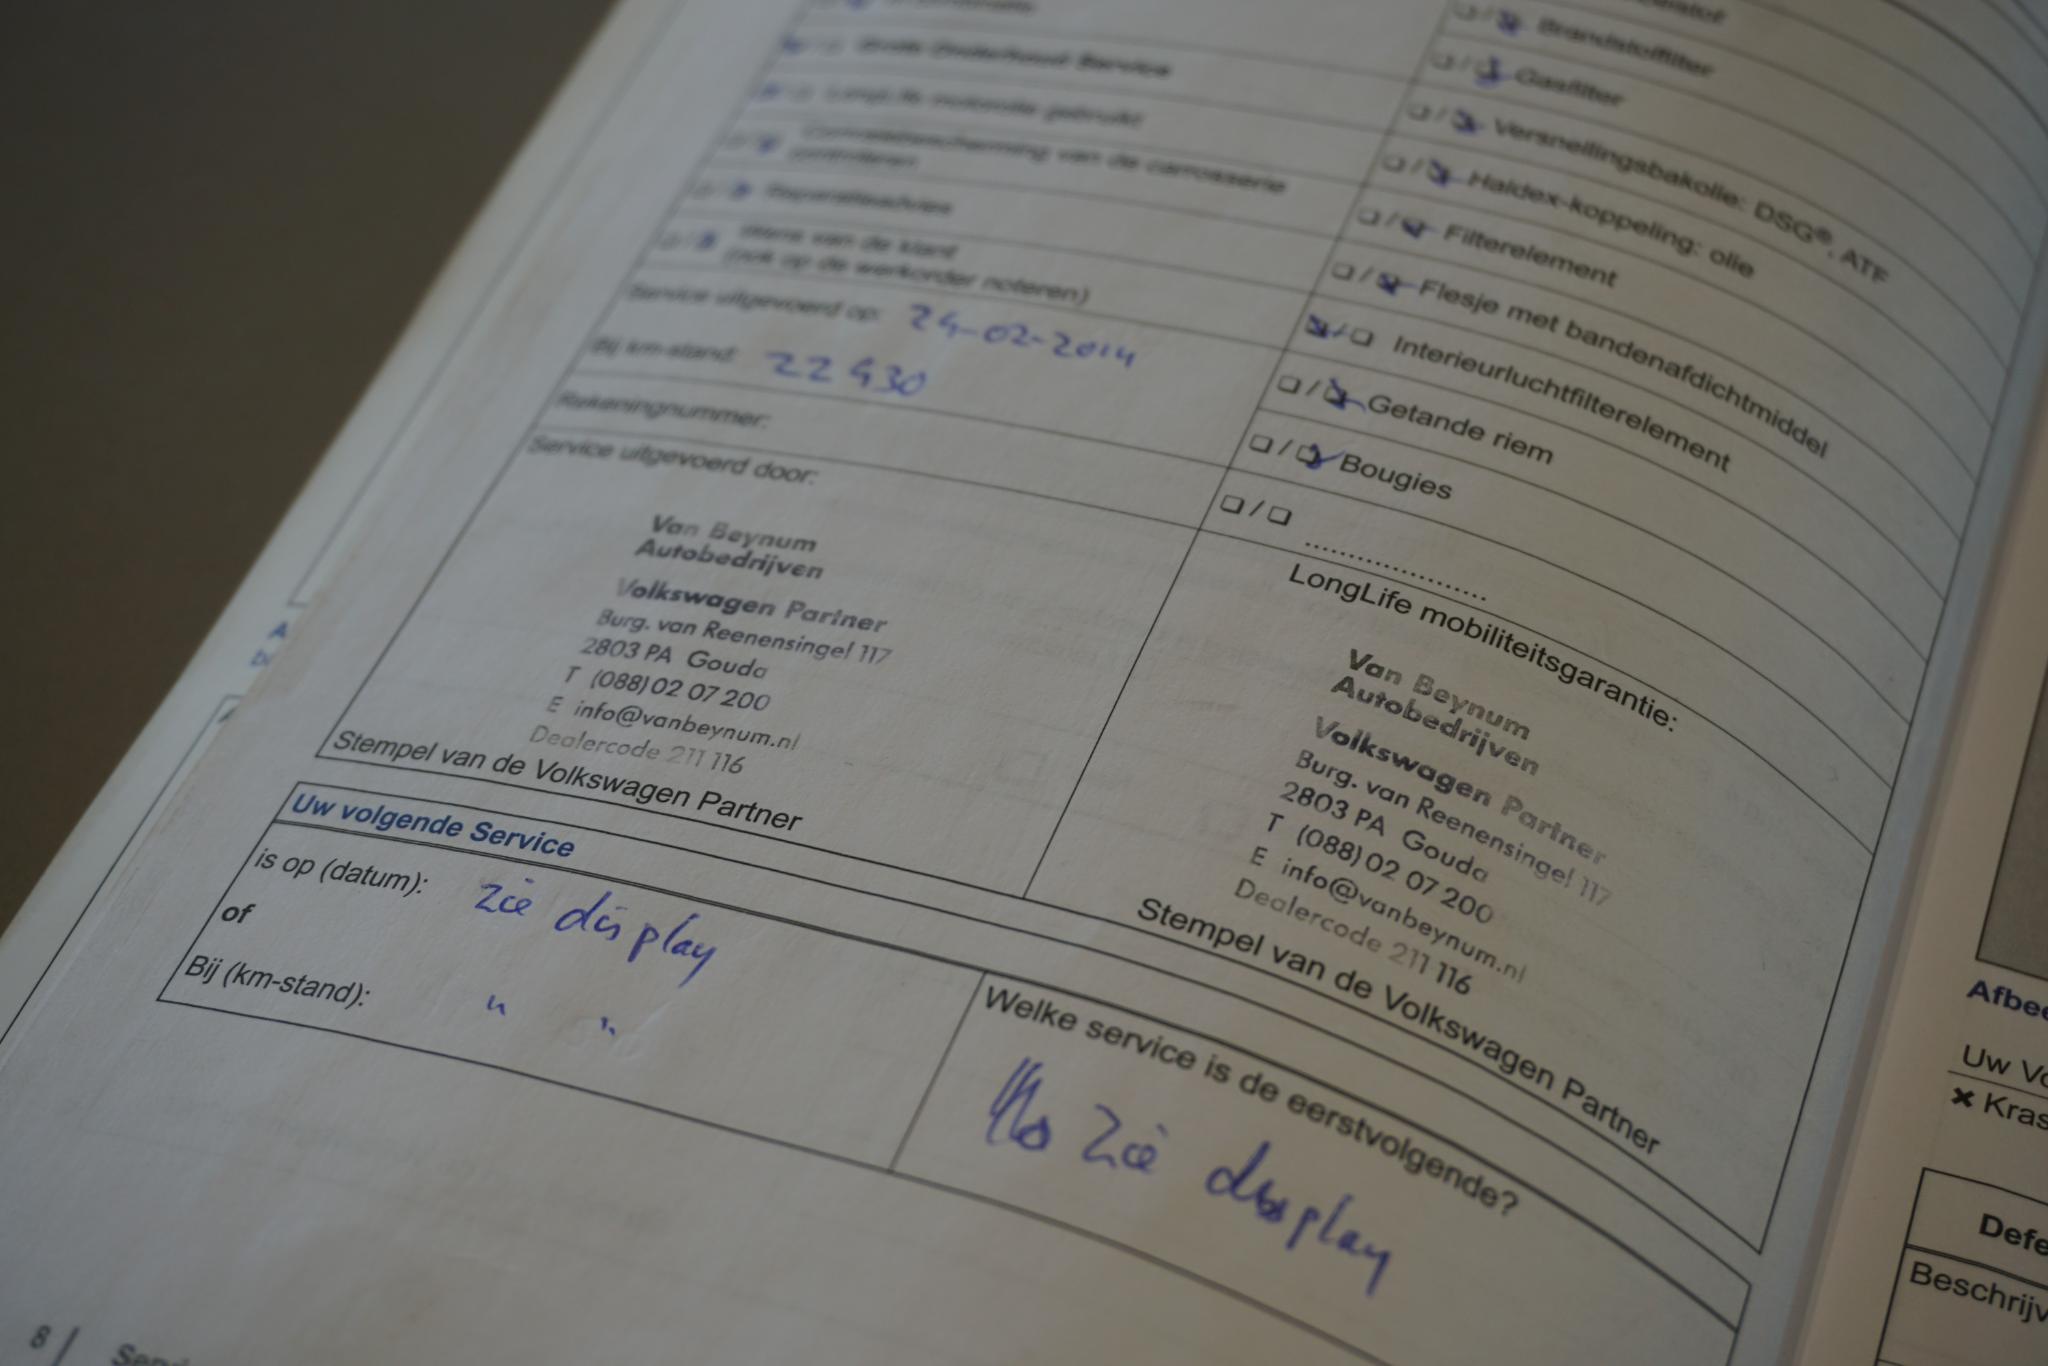 Grote Onderhoud Service
LongLife motorolie gebruikt
Corrosiebescherming van de carrosserie
controleren
Reparatieadvies
Wens van de klant
(ook op de werkorder noteren)
Service uitgevoerd op: 24-02-2014
Bij km-stand: 22430
Rekeningnummer:
Service uitgevoerd door:
Van Beynum
Autobedrijven
Volkswagen Partner
Burg. van Reenensingel 117
2803 PA Gouda
T (088) 02 07 200
E info@vanbeynum.nl
Dealercode 211 116
Stempel van de Volkswagen Partner
Brandstoffilter
Gasfilter
Versnellingsbakolie: DSG®, ATF
Haldex-koppeling: olie
Filterelement
Flesje met bandenafdichtmiddel
Interieurluchtfilterelement
Getande riem
Bougies
LongLife mobiliteitsgarantie:
Van Beynum
Autobedrijven
Volkswagen Partner
Burg. van Reenensingel 117
2803 PA Gouda
T (088) 02 07 200
E info@vanbeynum.nl
Dealercode 211 116
Stempel van de Volkswagen Partner
Uw volgende Service
is op (datum): zie display
of
Bij (km-stand): " "
Welke service is de eerstvolgende?
zie display
8 |
Afbee
Uw Vo
Kras
Defe
Beschrijv